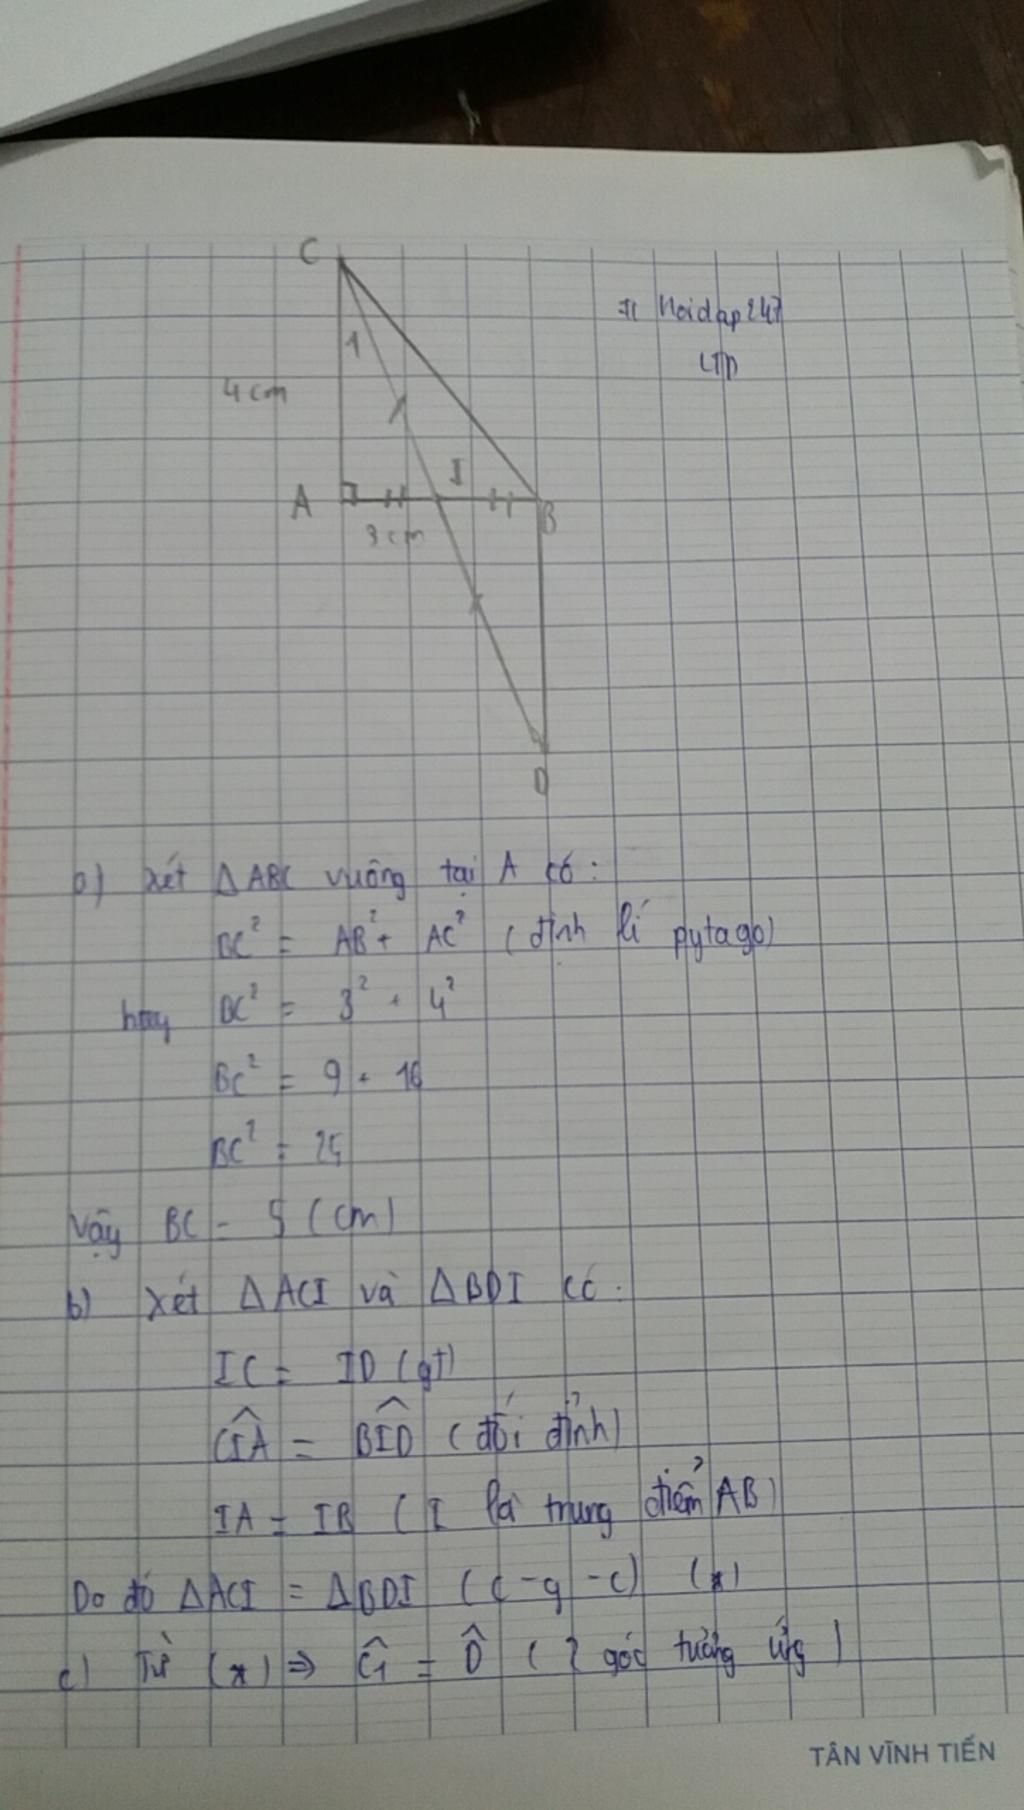 C
# Hoidap247
LTD
1
4 cm
I
A
B
3 cm
D
a) Xét ΔABC vuông tại A có:
BC² = AB² + AC² (định lí pytago)
hay BC² = 3² + 4²
BC² = 9 + 16
BC² = 25
Vậy BC = 5 (cm)
b) Xét ΔACI và ΔBDI có:
IC = ID (gt)
CÎA = BÎD (đối đỉnh)
IA = IB (I là trung điểm AB)
Do đó ΔACI = ΔBDI (c-g-c) (*)
c) Từ (*) ⇒ Ĉ₁ = D̂ (2 góc tương ứng)
TÂN VĨNH TIẾN